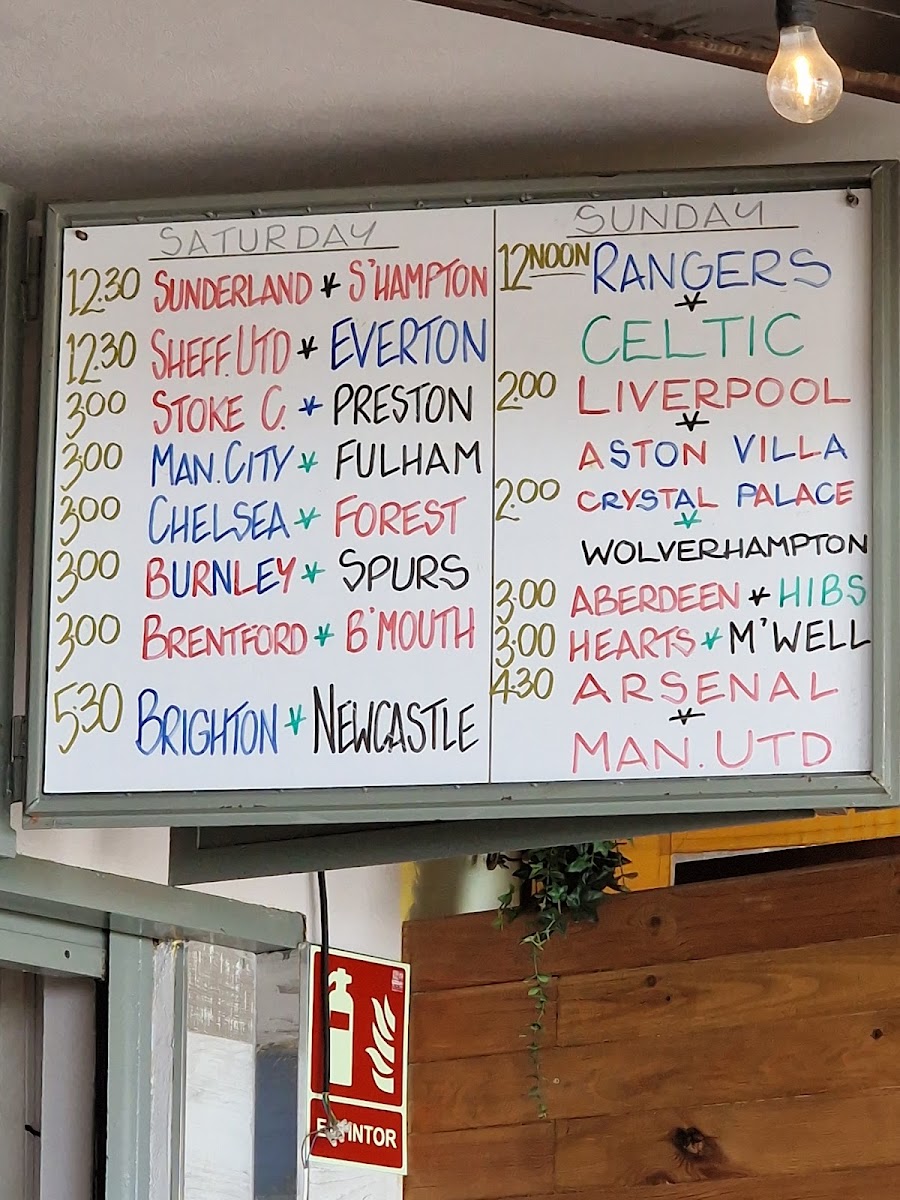 SATURDAY
12.30 SUNDERLAND v S'HAMPTON
12.30 SHEFF.UTD v EVERTON
3.00 STOKE C. v PRESTON
3.00 MAN.CITY v FULHAM
3.00 CHELSEA v FOREST
3.00 BURNLEY v SPURS
3.00 BRENTFORD v B'MOUTH
5.30 BRIGHTON v NEWCASTLE
SUNDAY
12 NOON RANGERS
v
CELTIC
2.00 LIVERPOOL
v
ASTON VILLA
2.00 CRYSTAL PALACE
v
WOLVERHAMPTON
3.00 ABERDEEN v HIBS
3.00 HEARTS v M'WELL
4.30 ARSENAL
v
MAN.UTD
EXTINTOR